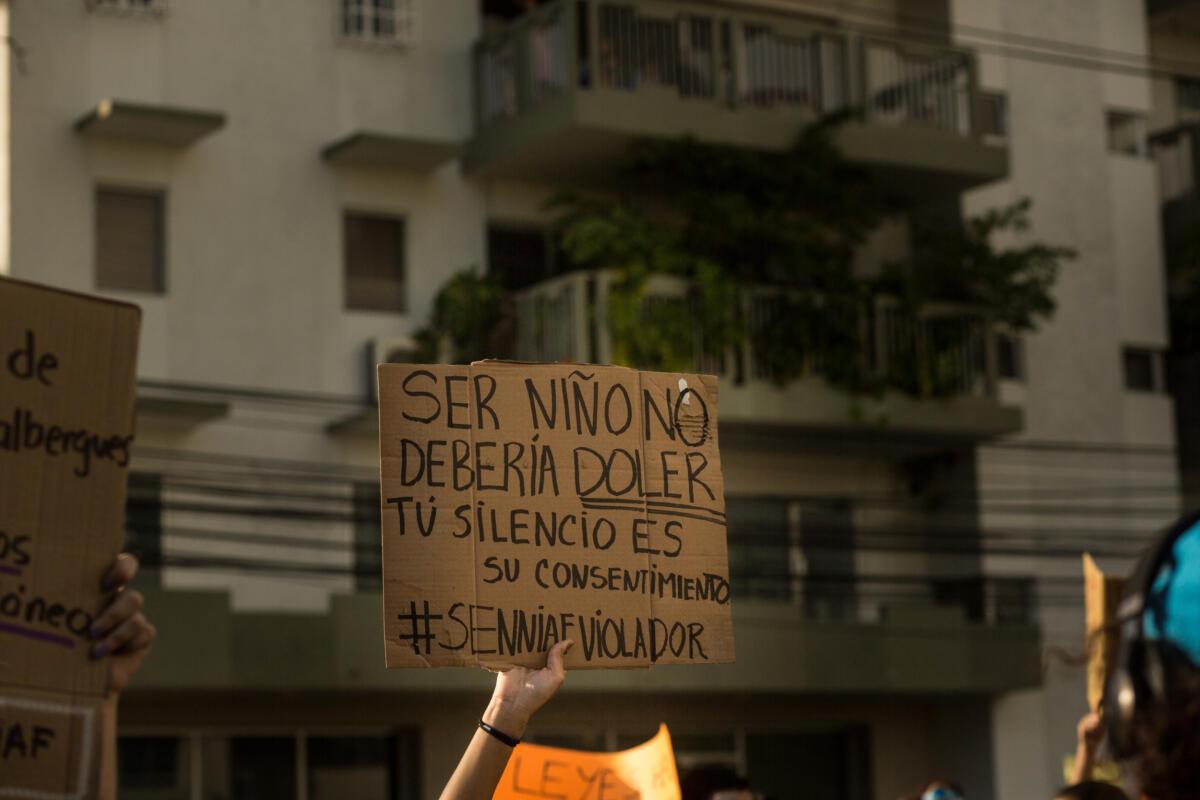 de
albergues
SER NIÑO NO
DEBERÍA DOLER
TÚ SILENCIO ES
SU CONSENTIMIENTO
#SENNIAFVIOLADOR
LEYES